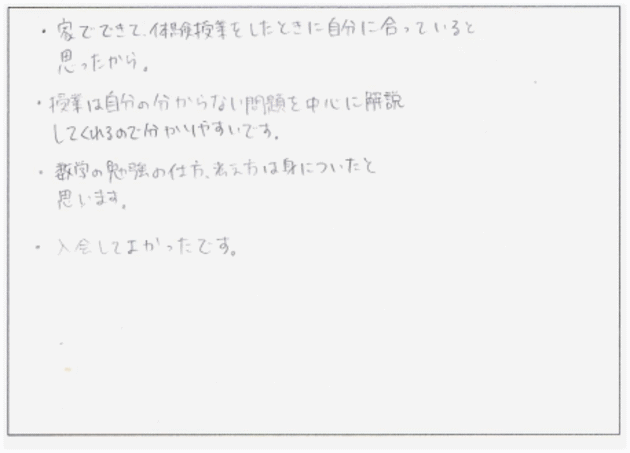 ・家でできて、体験授業をしたときに自分に合っていると
思ったから。
・授業は自分の分からない問題を中心に解説
してくれるので分かりやすいです。
・数学の勉強の仕方、考え方は身についたと
思います。
・入会してよかったです。